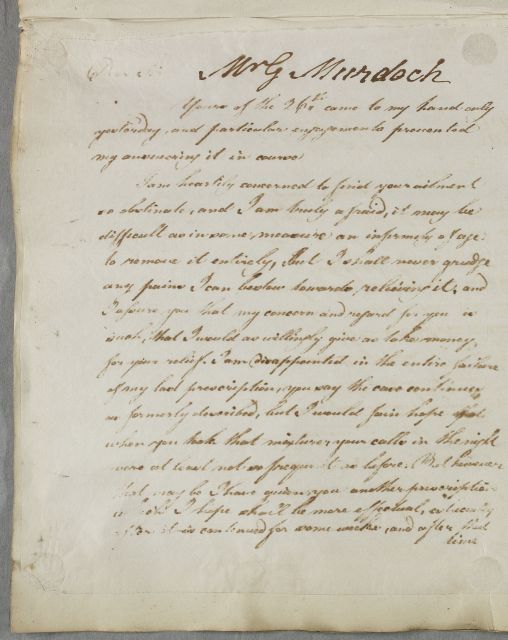 Dear Sir
Mr G Murdoch
Yours of the 26th came to my hand only
yesterday, and particular engagements prevented
my answering it in course
I am heartily concerned to find your ailment
so obstinate, and I am truly afraid, it may be
difficult as in some measure an infirmity of age
to remove it entirely, But I shall never grudge
any pains I can bestow towards relieving it, and
I assure you that my concern and regard for you is
such, that I would as willingly give as take money,
for your relief. I am disappointed in the entire failure
of my last prescription, you say the case continues
as formerly described, but I would fain hope that
when you took that mixture, your calls in the night
were at least not so frequent as before. But however
that may be I have given you another prescription
which I hope shall be more effectual, especially
after it is continued for some weeks, and after that
time